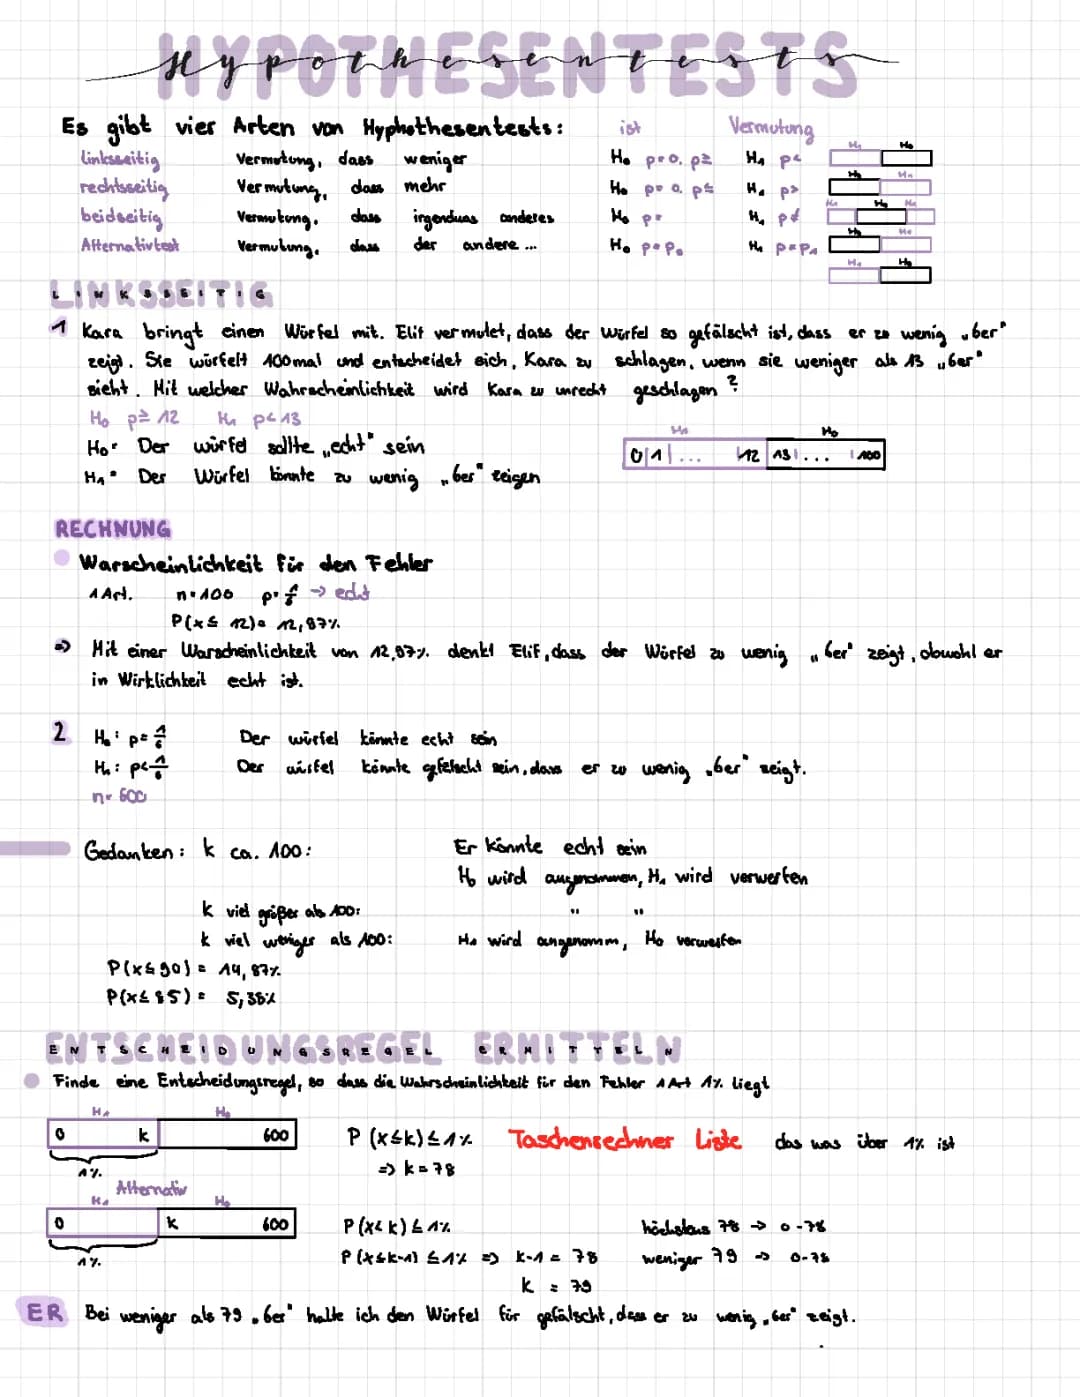 HYPOTHESENTESTS
Hypothesentests
Es gibt vier Arten von Hyphothesentests: ist Vermutung
linksseitig Vermutung, dass weniger H₀ p=0. p≥ H₁ p<
rechtsseitig Vermutung, dass mehr H₀ p=0. p≤ H₁ p>
beidseitig Vermutung, dass irgendwas anderes H₀ p= H₁ p≠
Alternativtest Vermutung, dass der andere ... H₀ p=p₀ H₁ p=p₁
H₁ H₀
H₀ H₁
H₁ H₀ H₁
H₀ H₁
H₁ H₀
LINKSSEITIG
1 Kara bringt einen Würfel mit. Elif vermutet, dass der Würfel so gefälscht ist, dass er zu wenig „6er"
zeigt. Sie würfelt 100mal und entscheidet sich, Kara zu schlagen, wenn sie weniger als 13 „6er"
sieht. Mit welcher Wahrscheinlichkeit wird Kara zu unrecht geschlagen?
H₀ p≥12 H₁ p<13
H₀: Der würfel sollte „echt" sein
H₁: Der Würfel könnte zu wenig „6er" zeigen
H₁ H₀
0|1|... 12 13|... |100
RECHNUNG
Warscheinlichkeit für den Fehler
1 Art. n=100 p=1/6 → echt
P(x≤12)= 12,87%
=> Mit einer Warscheinlichkeit von 12,87% denkt Elif, dass der Würfel zu wenig „6er" zeigt, obwohl er
in Wirklichkeit echt ist.
2 H₀: p=1/6 Der würfel könnte echt sein
H₁: p<1/6 Der würfel könnte gefelscht sein, dass er zu wenig „6er" zeigt.
n=600
Gedanken: k ca. 100: Er könnte echt sein
H₀ wird angenommen, H₁ wird verworfen
k viel größer als 100: " "
k viel weniger als 100: H₁ wird angenomm, H₀ verworfen
P(x≤90)= 14,87%
P(x≤85)= 5,35%
ENTSCHEIDUNGSREGEL ERMITTELN
Finde eine Entscheidungsregel, so dass die Wahrscheinlichkeit für den Fehler 1 Art 1% liegt
H₁ H₀
0 k 600 P(x≤k)≤1% Taschenrechner Liste das was über 1% ist
1% => k=78
Alternativ
H₁ H₀
0 k 600 P(x<k)≤1% höchstens 78 → 0-78
1% P(x≤k-1)≤1% => k-1 = 78 weniger 79 → 0-78
k = 79
ER Bei weniger als 79 „6er" halte ich den Würfel für gefälscht, dass er zu wenig „6er" zeigt.